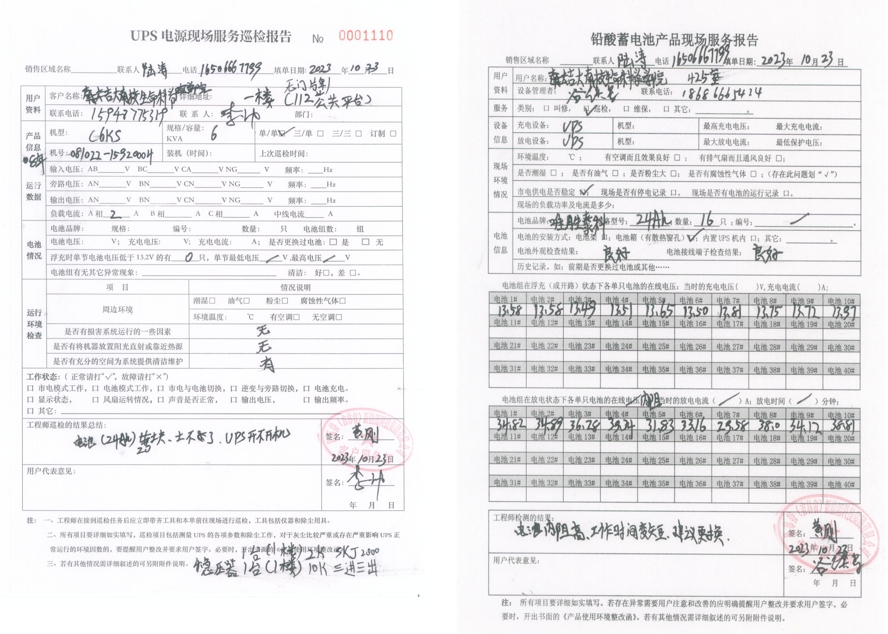 UPS 电源现场服务巡检报告 No 0001110
销售区域名称 联系人 陆涛 电话 16506667799 填单日期: 2023 年 10 月 23 日
用户资料
客户名称: 详细地址: 一楼
(112公共平台)
联系电话: 15948775319 联 系 人: 部门:
产品信息
机型: C6KS 规格/容量: KVA 6 单/单 三/单 □ 三/三 □ 订制 □
机号: 081022-15920004 装机（时间）: 上次巡检时间:
运行数据
输入电压: AB V BC V CA V NG V 频率: Hz
旁路电压: AN V BN V CN V NG V 频率: Hz
输出电压: AN V BN V CN V NG V 频率: Hz
负载电流: A 相 2 A B 相 A C 相 A 中线电流 A
电池情况
电池品牌: 规格: 编号: 数量: 只 电池组数: 组
电池电压: V; 充电电压: V; 充电电流: A; 是否更换过电池: □ 是 □ 无
浮充时单节电池电压低于 13.2V 的有 0 只, 单节最低电压 V, 最高电压 V
电池组有无其它异常现象: 清洁: 好□, 差 □。
运行环境检查
项 目 情况说明
周边环境
潮湿□ 油气□ 粉尘□ 腐蚀性气体□
环境温度: ℃ 有空调□ 无空调□
是否有损害系统运行的一些因素 无
是否有将机器放置阳光直射或靠近热源 无
是否有充分的空间为系统提供清洁维护 有
工作状态:（ 正常请打“√”, 故障请打“×”）
□ 市电模式工作, □ 电池模式工作, □ 市电与电池切换, □ 逆变与旁路切换, □ 电池充电。
□ 显示状态, □ 风扇运转情况, □ 声音是否正常, □ 输出电压, □ 输出频率。
□ 其它:
工程师巡检的结果总结:
电池(24AH) 20 UPS开不了机
签名: 黄刚
2023年10月23日
用户代表意见:
签名:
年 月 日
注: 一、工程师在接到巡检任务后应立即带齐工具和本单前往现场进行巡检, 工具包括仪器和除尘用具。
二、所有项目要详细如实填写, 巡检项目包括测量 UPS 的各项参数和除尘工作, 对于灰尘比较严重或存在严重影响 UPS 正
常运行的环境因数的, 要提醒用户整改并要求用户签字,
三、若有其他情况需详细叙述的可另附附件说明。
稳压器 1台(1楼) 10K 三进三出
铅酸蓄电池产品现场服务报告
销售区域名称 联系人 陆涛 电话 16506667799 填单日期: 2023 年 10 月 23 日
用户资料
用户名称: 425室
设备管理者: 联系电话: 18686665414
服务 类别: □ 叫修, 巡检, □ 维保, □ 其它:
设备信息
充电设备: UPS 机型: 最高充电电压: 最大充电电流:
放电设备: UPS 机型: 最大放电电流: 最低保护电压:
现场环境情况
环境温度: ℃; 有空调而且效果良好 □; 有排气扇而且通风良好 □;
是否潮湿 □; 是否有油气 □; 是否粉尘大 □; 是否有腐蚀性气体 □;（存在此问题划“√”）
市电供电是否稳定 √ 现场是否有停电记录 □, 现场是否有电池的运行记录 □。
现场的负载功率及电流是多少:
电池信息
电池品牌: 规格型号: 24AH 数量: 16 只; 编号:
电池的安装方式: 电池架 □; 电池箱（有散热窗孔） √; 内置 UPS 机内 □; 其它:
电池外观检查结果: 良好 电池接线端子检查结果: 良好
历史记录, 如: 前期是否更换过电池或其他……
电池组在浮充（或开路）状态下各单只电池的在线电压: 当时的充电电压( )V, 充电电流( )A;
电池 1# 电池 2# 电池 3# 电池 4# 电池 5# 电池 6# 电池 7# 电池 8# 电池 9# 电池 10#
13.58 13.58 13.49 13.51 13.65 13.50 13.81 13.75 13.72 13.97
电池 11# 电池 12# 电池 13# 电池 14# 电池 15# 电池 16# 电池 17# 电池 18# 电池 19# 电池 20#
电池 21# 电池 22# 电池 23# 电池 24# 电池 25# 电池 26# 电池 27# 电池 28# 电池 29# 电池 30#
电池 31# 电池 32# 电池 33# 电池 34# 电池 35# 电池 36# 电池 37# 电池 38# 电池 39# 电池 40#
电池组在放电状态下各单只电池的在线电压 内阻 当时的放电电流( )A; 放电时间( )分钟;
电池 1# 电池 2# 电池 3# 电池 4# 电池 5# 电池 6# 电池 7# 电池 8# 电池 9# 电池 10#
34.82 34.89 36.28 39.24 31.83 33.16 29.58 38.0 34.12 38.81
电池 11# 电池 12# 电池 13# 电池 14# 电池 15# 电池 16# 电池 17# 电池 18# 电池 19# 电池 20#
电池 21# 电池 22# 电池 23# 电池 24# 电池 25# 电池 26# 电池 27# 电池 28# 电池 29# 电池 30#
电池 31# 电池 32# 电池 33# 电池 34# 电池 35# 电池 36# 电池 37# 电池 38# 电池 39# 电池 40#
工程师检测的结果:
电池内阻高、工作时间变短、建议更换.
签名: 黄刚
2023年10月23日
用户代表意见:
签名:
年 月 日
注: 所有项目要详细如实填写, 若存在异常需要用户注意和改善的应明确提醒用户整改并要求用户签字, 必
要时, 开出书面的《产品使用环境整改函》。若有其他情况需详细叙述的可另附附件说明。